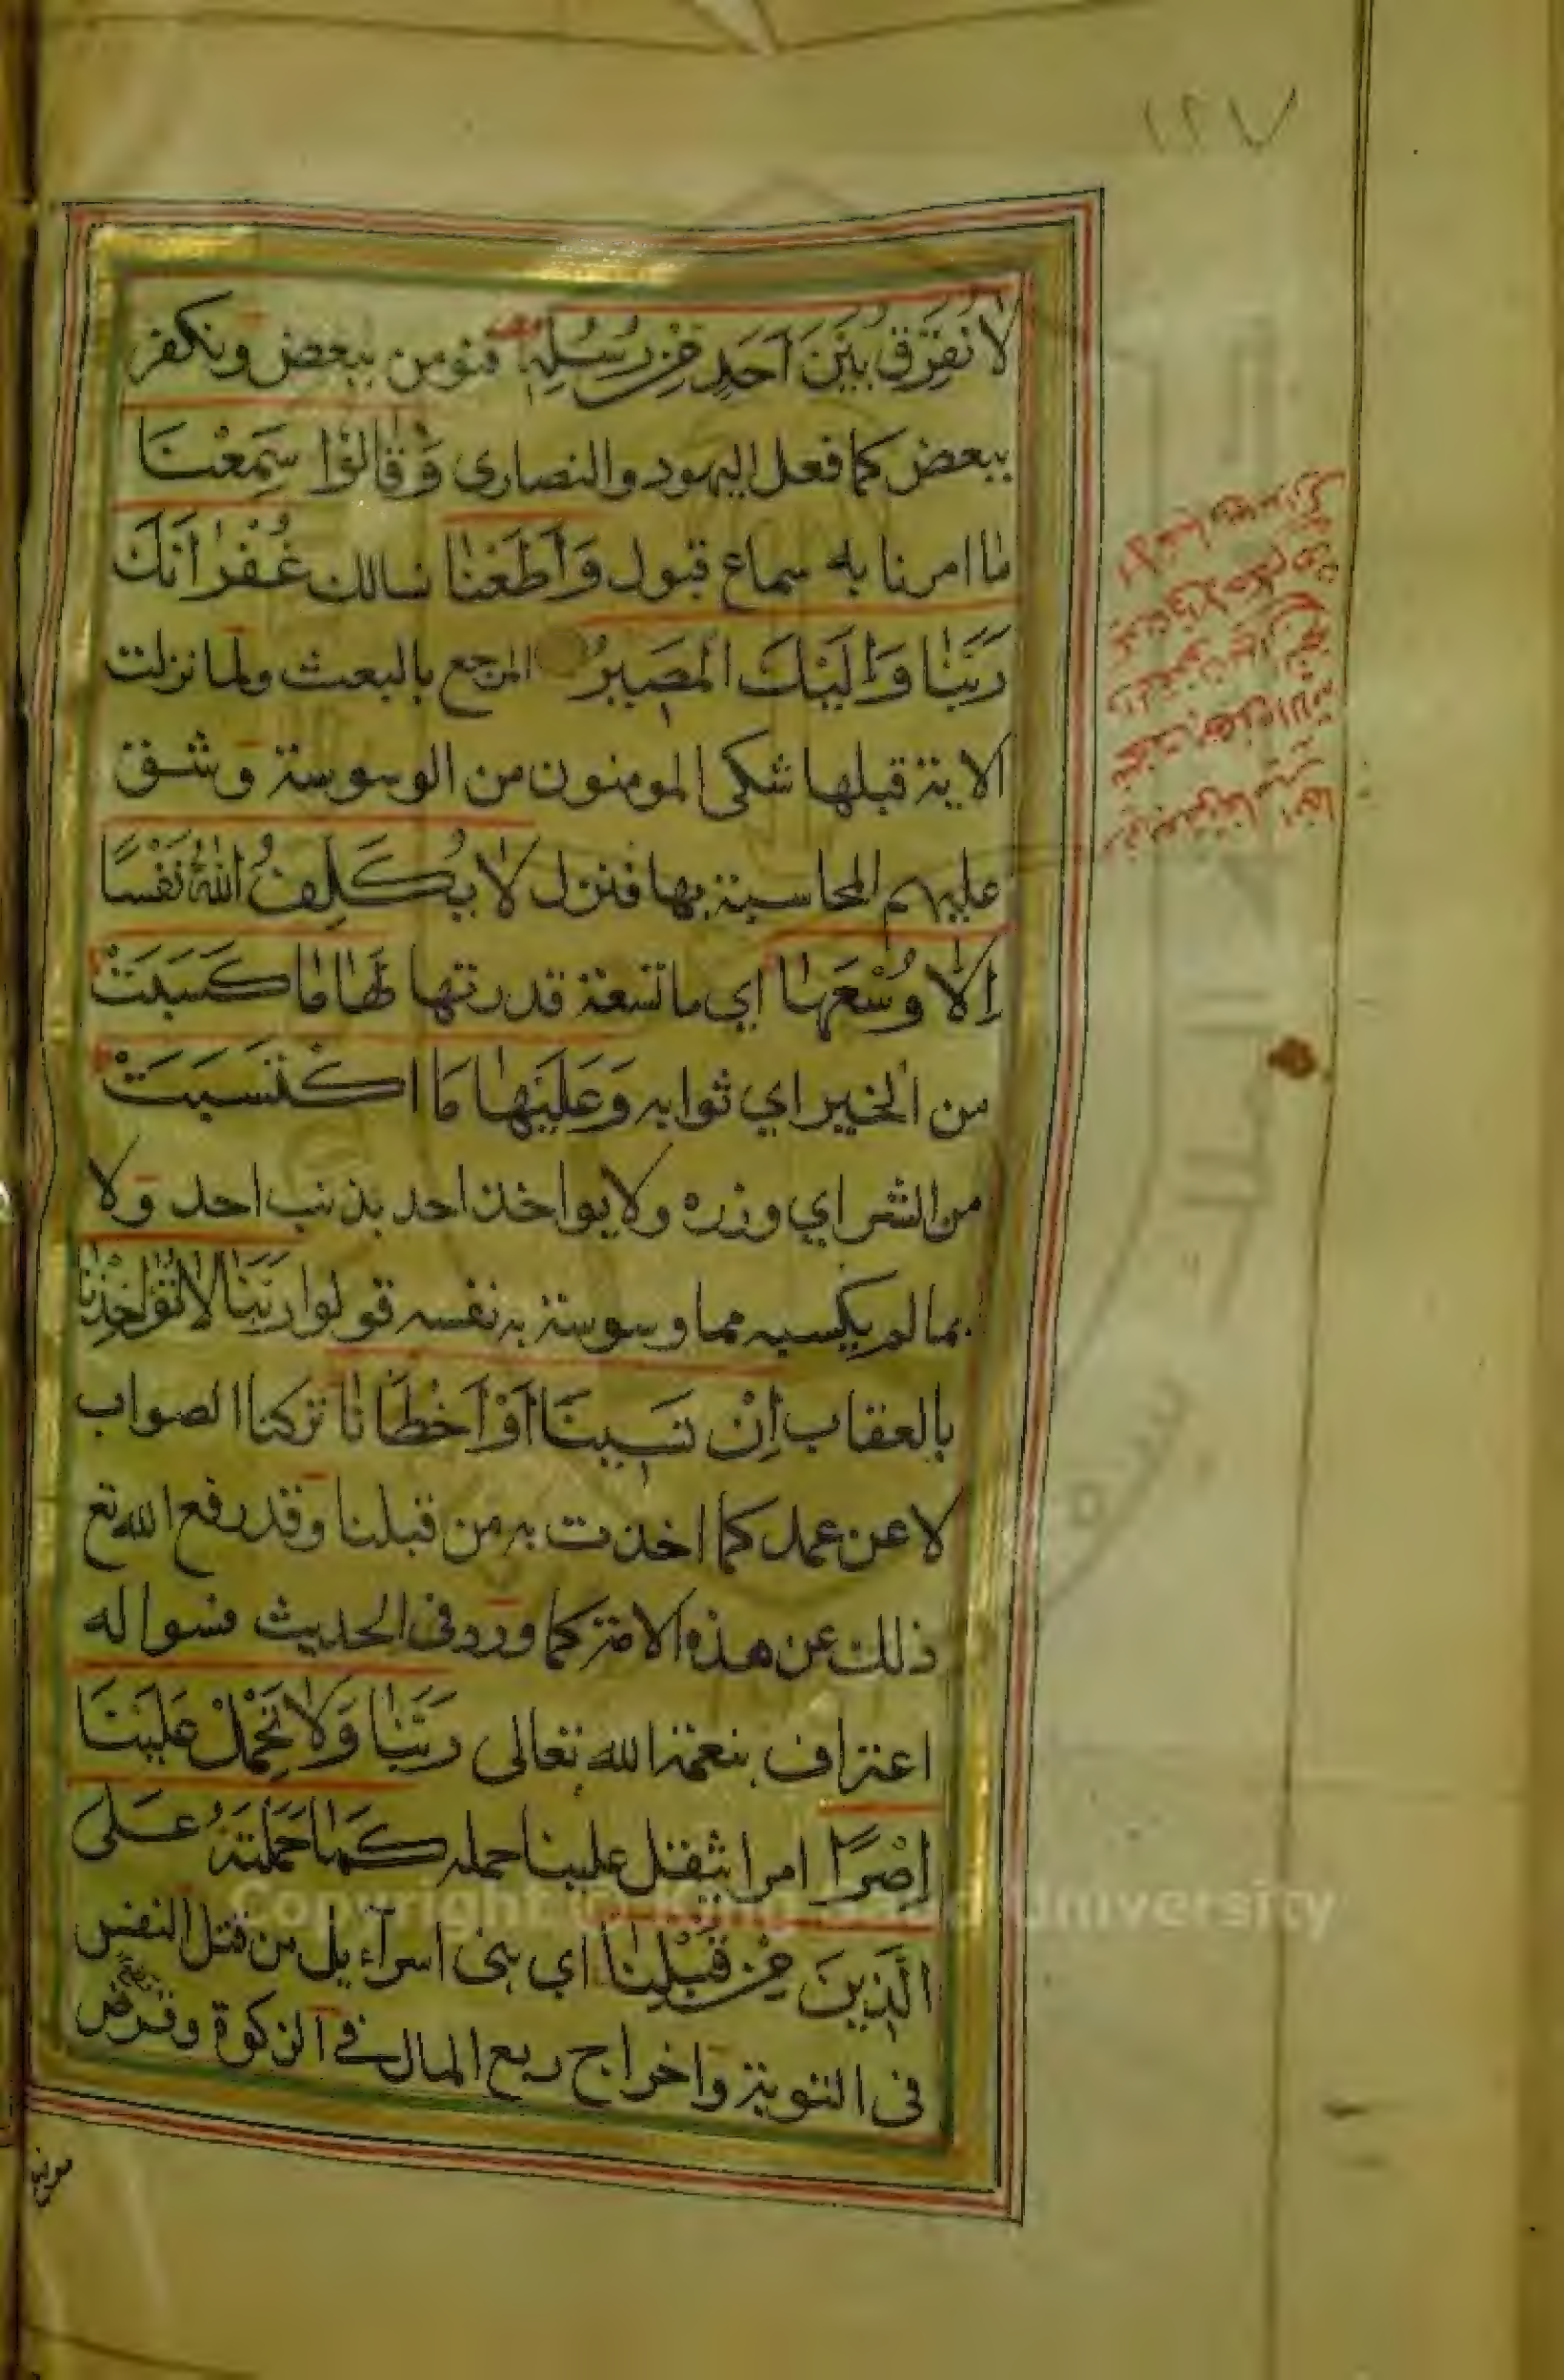 ١٢٧
لَا نُفَرِّقُ بَيْنَ اَحَدٍ مِنْ رُسُلِهِ فنومن ببعض ونكفر
ببعض كما فعل اليهود والنصارى وَقَالُوْا سَمِعْنَا
ما امرنا به سماع قبول وَاَطَعْنَا نسالك غُفْرَانَكَ
رَبَّنَا وَاِلَيْكَ الْمَصِيرُ المرجع بالبعث ولما نزلت
الاية قبلها شكى المومنون من الوسوسة وشق
عليهم المحاسبة بها فنزل لَا يُكَلِّفُ اللهُ نَفْسًا
اِلَّا وُسْعَهَا اي ما تسعة قدرتها لَهَا مَا كَسَبَتْ
من الخير اي ثوابه وَعَلَيْهَا مَا اكْتَسَبَتْ
من الشر اي وزره ولا يواخذ احد بذنب احد ولا
بما لم يكسبه مما وسوسة به نفسه قولوا رَبَّنَا لَا تُؤَاخِذْنَا
بالعقاب اِنْ نَسِينَا اَوْ اَخْطَانَا تركنا الصواب
لا عن عمد كما اخذت به من قبلنا وقد رفع الله تع
ذلك عن هذه الامة كما ورد في الحديث فسواله
اعتراف بنعمة الله تعالى رَبَّنَا وَلَا تَحْمِلْ عَلَيْنَا
اِصْرًا امرا يثقل علينا حمله كَمَا حَمَلْتَهُ عَلَى
الَّذِينَ مِنْ قَبْلِنَا اي بنى اسرآءيل من قتل النفس
فى التوبة واخراج ربع المال في الزكوة وقرض
Copyright © King Saud University